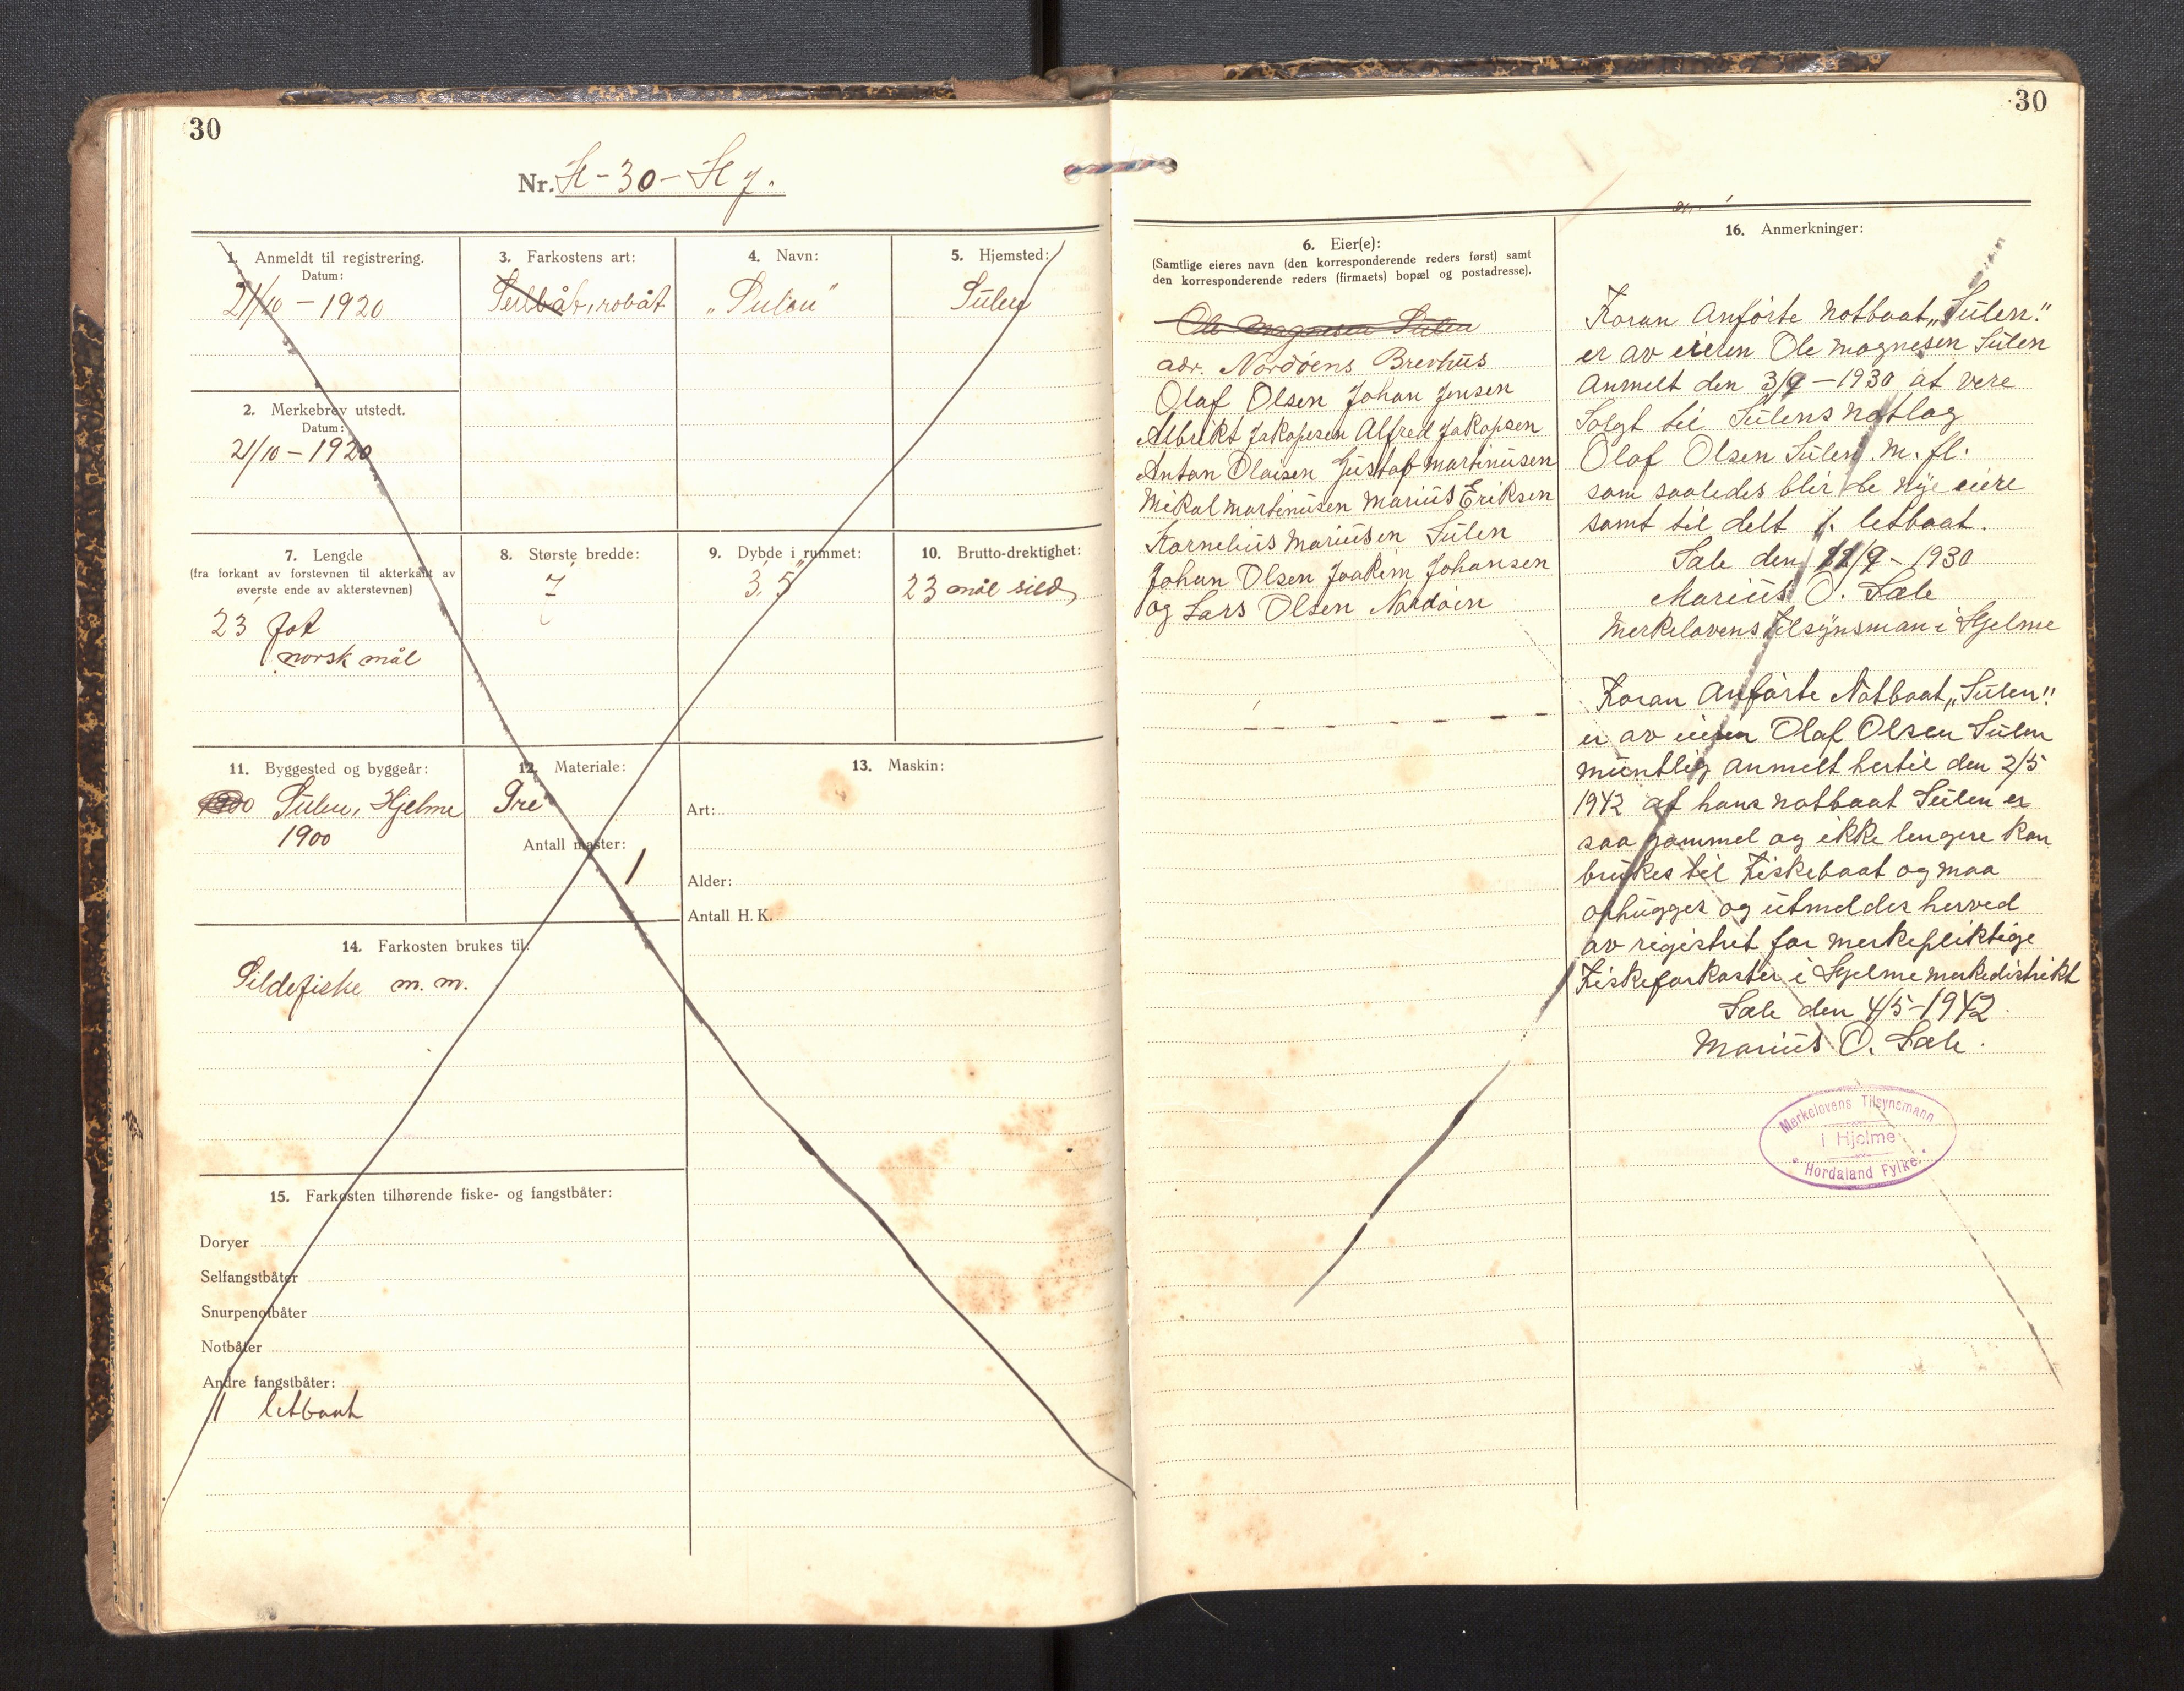 30
Nr. H-30-Hj.
1. Anmeldt til registrering.
Datum:
21/10 - 1920
2. Merkebrev utstedt.
Datum:
21/10 - 1920
3. Farkostens art:
Seilbåt, robåt
4. Navn:
„Sulen"
5. Hjemsted:
Sulen
7. Lengde
(fra forkant av forstevnen til akterkant av
øverste ende av akterstevnen)
23 fot
norsk mål
8. Største bredde:
7
9. Dybde i rummet:
3,5
10. Brutto-drektighet:
23 mål sild
11. Byggested og byggeår:
Sulen, Hjelme
1900
12. Materiale:
Tre
Antall master:
1
13. Maskin:
Art:
Alder:
Antall H. K.
14. Farkosten brukes til:
Sildefiske m. m.
15. Farkosten tilhørende fiske- og fangstbåter:
Doryer
Selfangstbåter
Snurpenotbåter
Notbåter
Andre fangstbåter:
1 letbaat
30
6. Eier(e):
(Samtlige eieres navn (den korresponderende reders først) samt
den korresponderende reders (firmaets) bopæl og postadresse).
Ole Magnesen Sulen
adr. Nordøens Brevhus
Olaf Olsen Johan Jensen
Albrikt Jakopsen Alfred Jakopsen
Anton Olaisen Gustaf Martinusen
Mikal Martinusen Marius Eriksen
Kornelius Mariusen Sulen
Johan Olsen Joakim Johansen
og Lars Olsen Nordøen
16. Anmerkninger:
Foran Anførte Notbaat „Sulen"
er av eieren Ole Magnesen Sulen
Anmelt den 3/9 - 1930 at vere
Solgt til Sulens notlag
Olaf Olsen Sulen m. fl.
som saaledes blir de nye eiere
samt til delt 1. letbaat.
Sæle den 11/9 - 1930
Marius O. Sæle
Merkelovens tilsynsman i Hjelme
Foran Anførte Notbaat „Sulen"
er av eieren Olaf Olsen Sulen
muntlig Anmelt hertil den 2/5
1942 at hans notbaat Sulen er
saa gammel og ikke lengere kan
brukes til Fiskebaat og maa
ophugges og utmeldes herved
av registret for merkepliktige
Fiskefarkoster i Hjelme merkedistrikt
Sæle den 4/5-1942.
Marius O. Sæle.
Merkelovens Tilsynsmann
i Hjelme
Hordaland Fylke